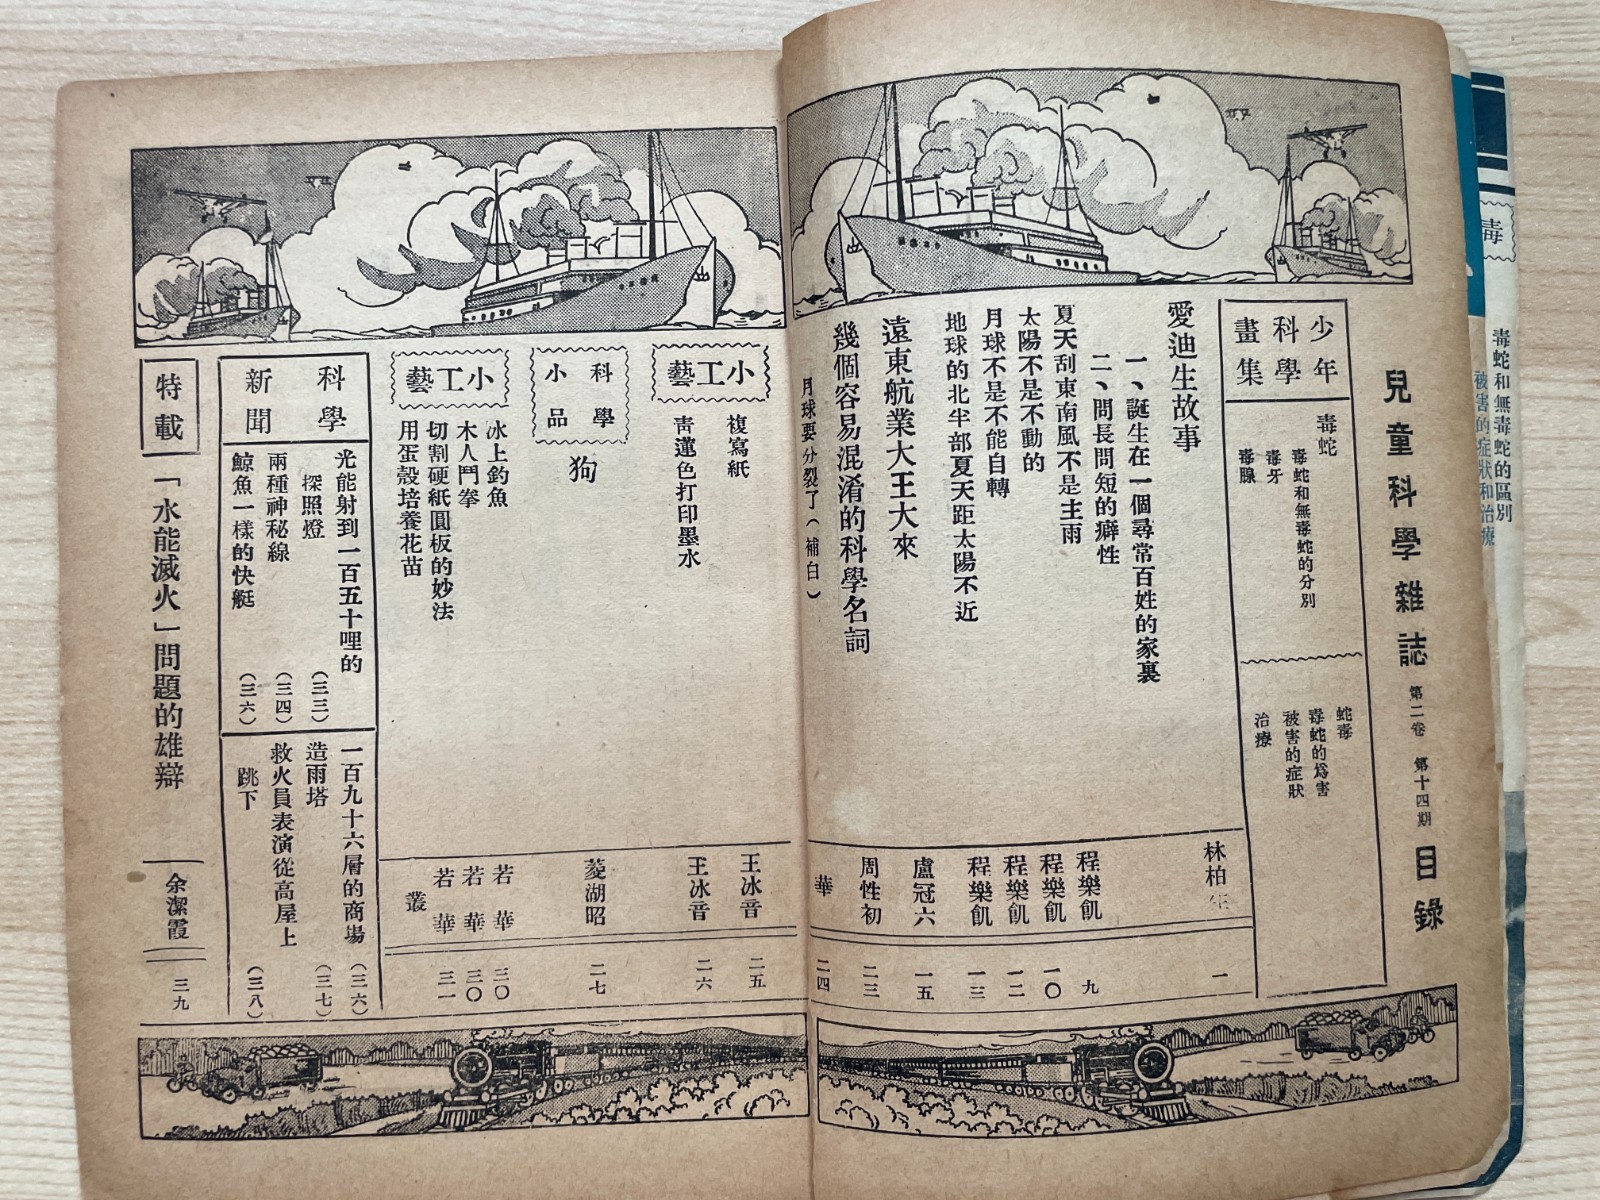 兒童科學雜誌 第二卷 第十四期 目錄
少年
科學
畫集
毒蛇
毒蛇和無毒蛇的分別
毒牙
毒腺
蛇毒
毒蛇的爲害
被害的症狀
治療
愛迪生故事 林柏 一
一、誕生在一個尋常百姓的家裏
二、問長問短的癖性
夏天刮東南風不是主雨 程樂飢 九
太陽不是不動的 程樂飢 一〇
月球不是不能自轉 程樂飢 一二
地球的北半部夏天距太陽不近 程樂飢 一三
遠東航業大王大來 盧冠六 一五
幾個容易混淆的科學名詞 周性初 二三
月球要分裂了(補白) 華 二四
小工藝
複寫紙 王冰音 二五
青蓮色打印墨水 王冰音 二六
科學
小品
狗 菱湖昭 二七
小工藝
冰上釣魚 若華 三〇
木人鬥拳 若華 三〇
切割硬紙圓板的妙法 若華 三一
用蛋殼培養花苗 叢
科學
新聞
光能射到一百五十哩的
探照燈 (三三)
兩種神秘線 (三四)
鯨魚一樣的快艇 (三六)
一百九十六層的商場 (三六)
造雨塔 (三七)
救火員表演從高屋上
跳下 (三八)
特載
「水能滅火」問題的雄辯 余潔霞 三九
毒
毒蛇和無毒蛇的區別
被害的症狀和治療